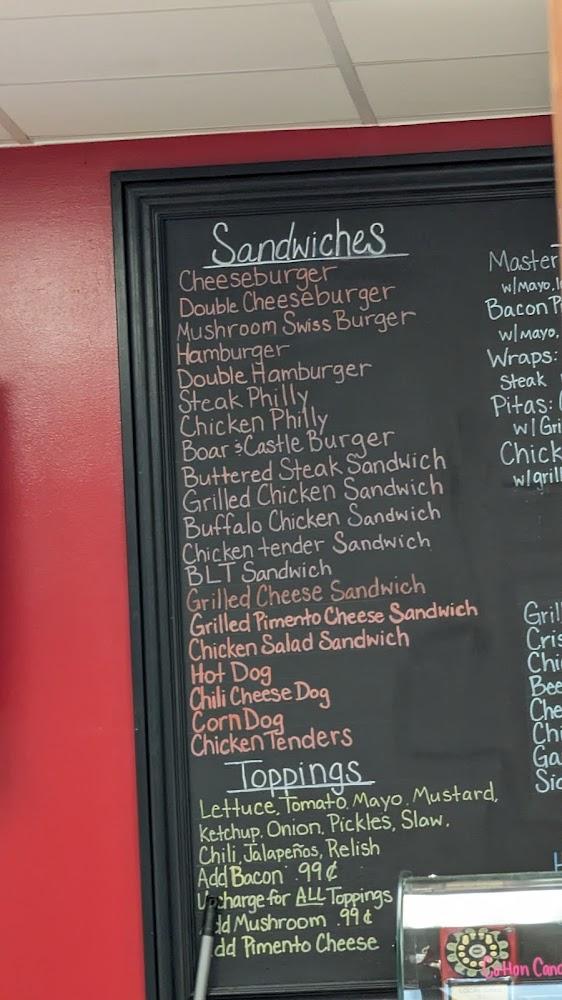 Sandwiches
Cheeseburger
Double Cheeseburger
Mushroom Swiss Burger
Hamburger
Double Hamburger
Steak Philly
Chicken Philly
Boar & Castle Burger
Buttered Steak Sandwich
Grilled Chicken Sandwich
Buffalo Chicken Sandwich
Chicken tender Sandwich
BLT Sandwich
Grilled Cheese Sandwich
Grilled Pimento Cheese Sandwich
Chicken Salad Sandwich
Hot Dog
Chili Cheese Dog
Corn Dog
Chicken Tenders
Toppings
Lettuce, Tomato, Mayo, Mustard,
Ketchup, Onion, Pickles, Slaw,
Chili, Jalapeños, Relish
Add Bacon .99¢
Upcharge for ALL Toppings
Add Mushroom .99¢
Add Pimento Cheese
Master
w/mayo,
Bacon
w/mayo,
Wraps:
Steak
Pitas:
w/Gri
Chick
w/grill
Gril
Cris
Chi
Bee
Che
Chi
Ga
Sid
Cotton Canc